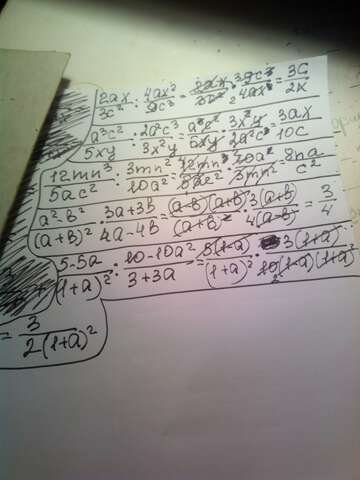 2ax/3c² : 4ax²/9c³ = 2ax/3c² · 9c³/4ax² = 3c/2x
a³c²/5xy : 2a²c³/3x²y = a³c²/5xy · 3x²y/2a²c³ = 3ax/10c
12mn³/5ac² : 3mn²/10a² = 12mn³/5ac² · 10a²/3mn² = 8na/c²
a²-b²/(a+b)² : 3a+3b/4a-4b = (a-b)(a+b)/(a+b)² · 3(a+b)/4(a-b) = 3/4
5-5a/(1+a)² : 10-10a²/3+3a = 5(1-a)/(1+a)² · 3(1+a)/10(1-a)(1+a)
= 3/2(1+a)²